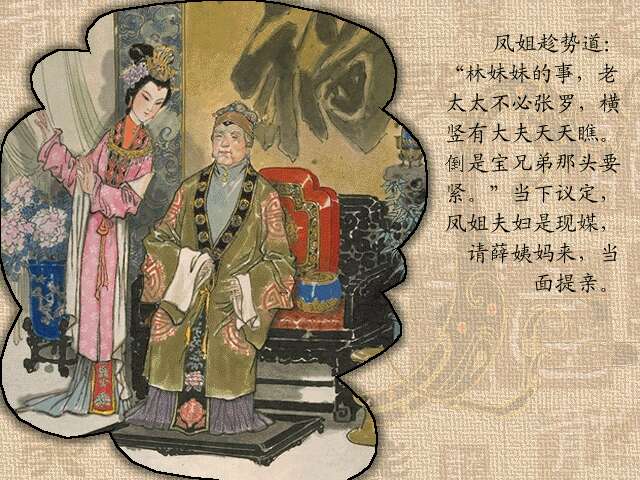 凤姐趁势道：
“林妹妹的事，老
太太不必张罗，横
竖有大夫天天瞧。
倒是宝兄弟那头要
紧。”当下议定，
凤姐夫妇是现媒，
请薛姨妈来，当
面提亲。